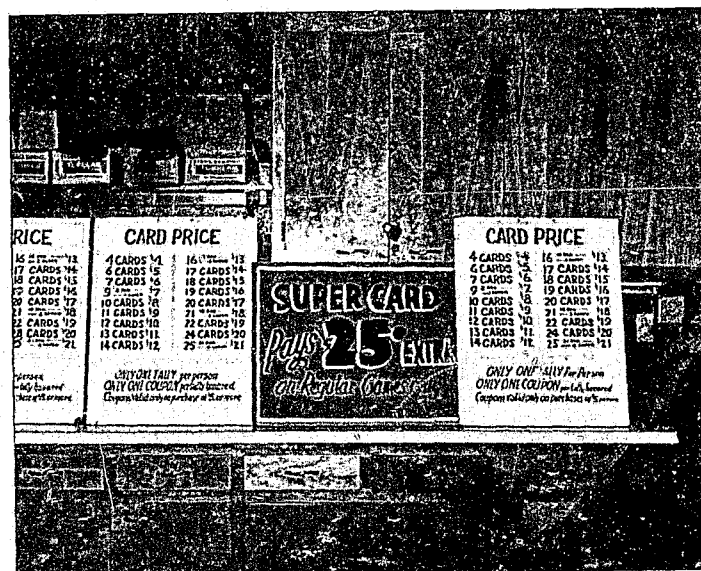 RICE
16 $13
17 CARDS $14
18 CARDS $15
19 CARDS $16
20 CARDS $17
21 $18
22 CARDS $19
CARDS $20
$21
per person
tally honored
or more
CARD PRICE
4 CARDS $4 16 $13
6 CARDS $5 17 CARDS $14
7 CARDS $6 18 CARDS $15
9 $7 19 CARDS $16
10 CARDS $8 20 CARDS $17
11 CARDS $9 21 $18
12 CARDS $10 22 CARDS $19
13 CARDS $11 24 CARDS $20
14 CARDS $12 25 $21
ONLY ONE TALLY per person
ONLY ONE COUPON per tally honored
Coupons Valid only on purchase of or more
SUPER CARD
Pays 25¢ EXTRA
on Regular Games
CARD PRICE
4 CARDS $4 16 $13
6 CARDS $5 17 CARDS $14
7 CARDS $6 18 CARDS $15
9 $7 19 CARDS $16
10 CARDS $8 20 CARDS $17
11 CARDS $9 21 $18
12 CARDS $10 22 CARDS $19
13 CARDS $11 24 CARDS $20
14 CARDS $12 25 $21
ONLY ONE TALLY Per Person
ONLY ONE COUPON per tally honored
Coupons Valid only on purchases of or more